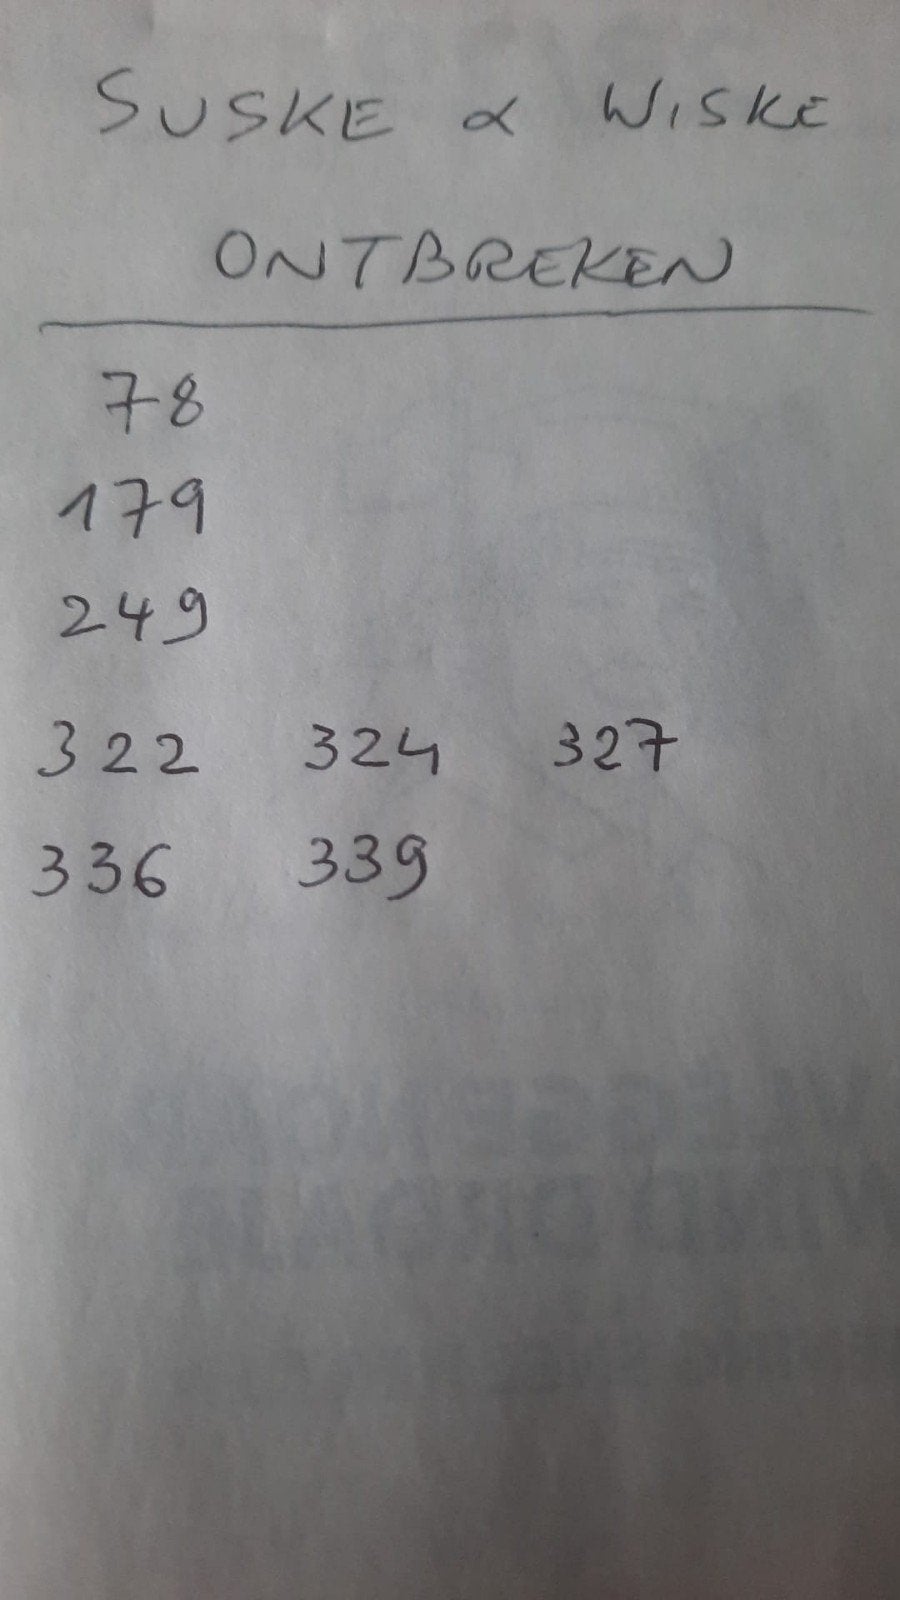 SUSKE & WISKE
ONTBREKEN
78
179
249
322 324 327
336 339